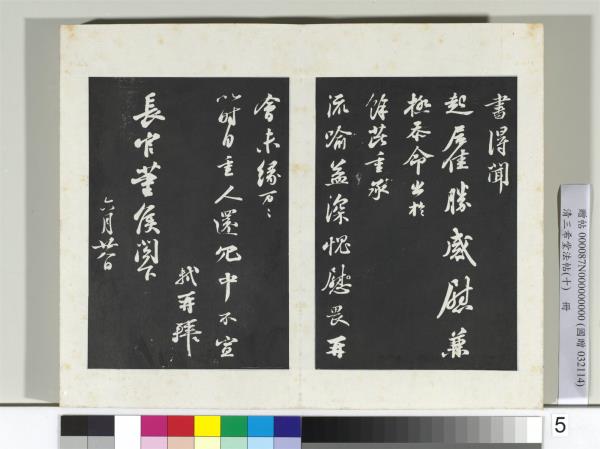 書得聞
起居佳勝感慰兼
極忝命出於
餘茈重承
流喻益深愧慰畏再
會未緣万〻
以時自重人還冗中不宣
軾再拜
長官董侯閣下
六月廿八日
贈帖 000087N000000000 (國贈 032114)
清三希堂法帖(十) 冊
5